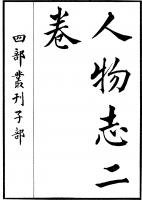 人物志二
卷
四部叢刊子部